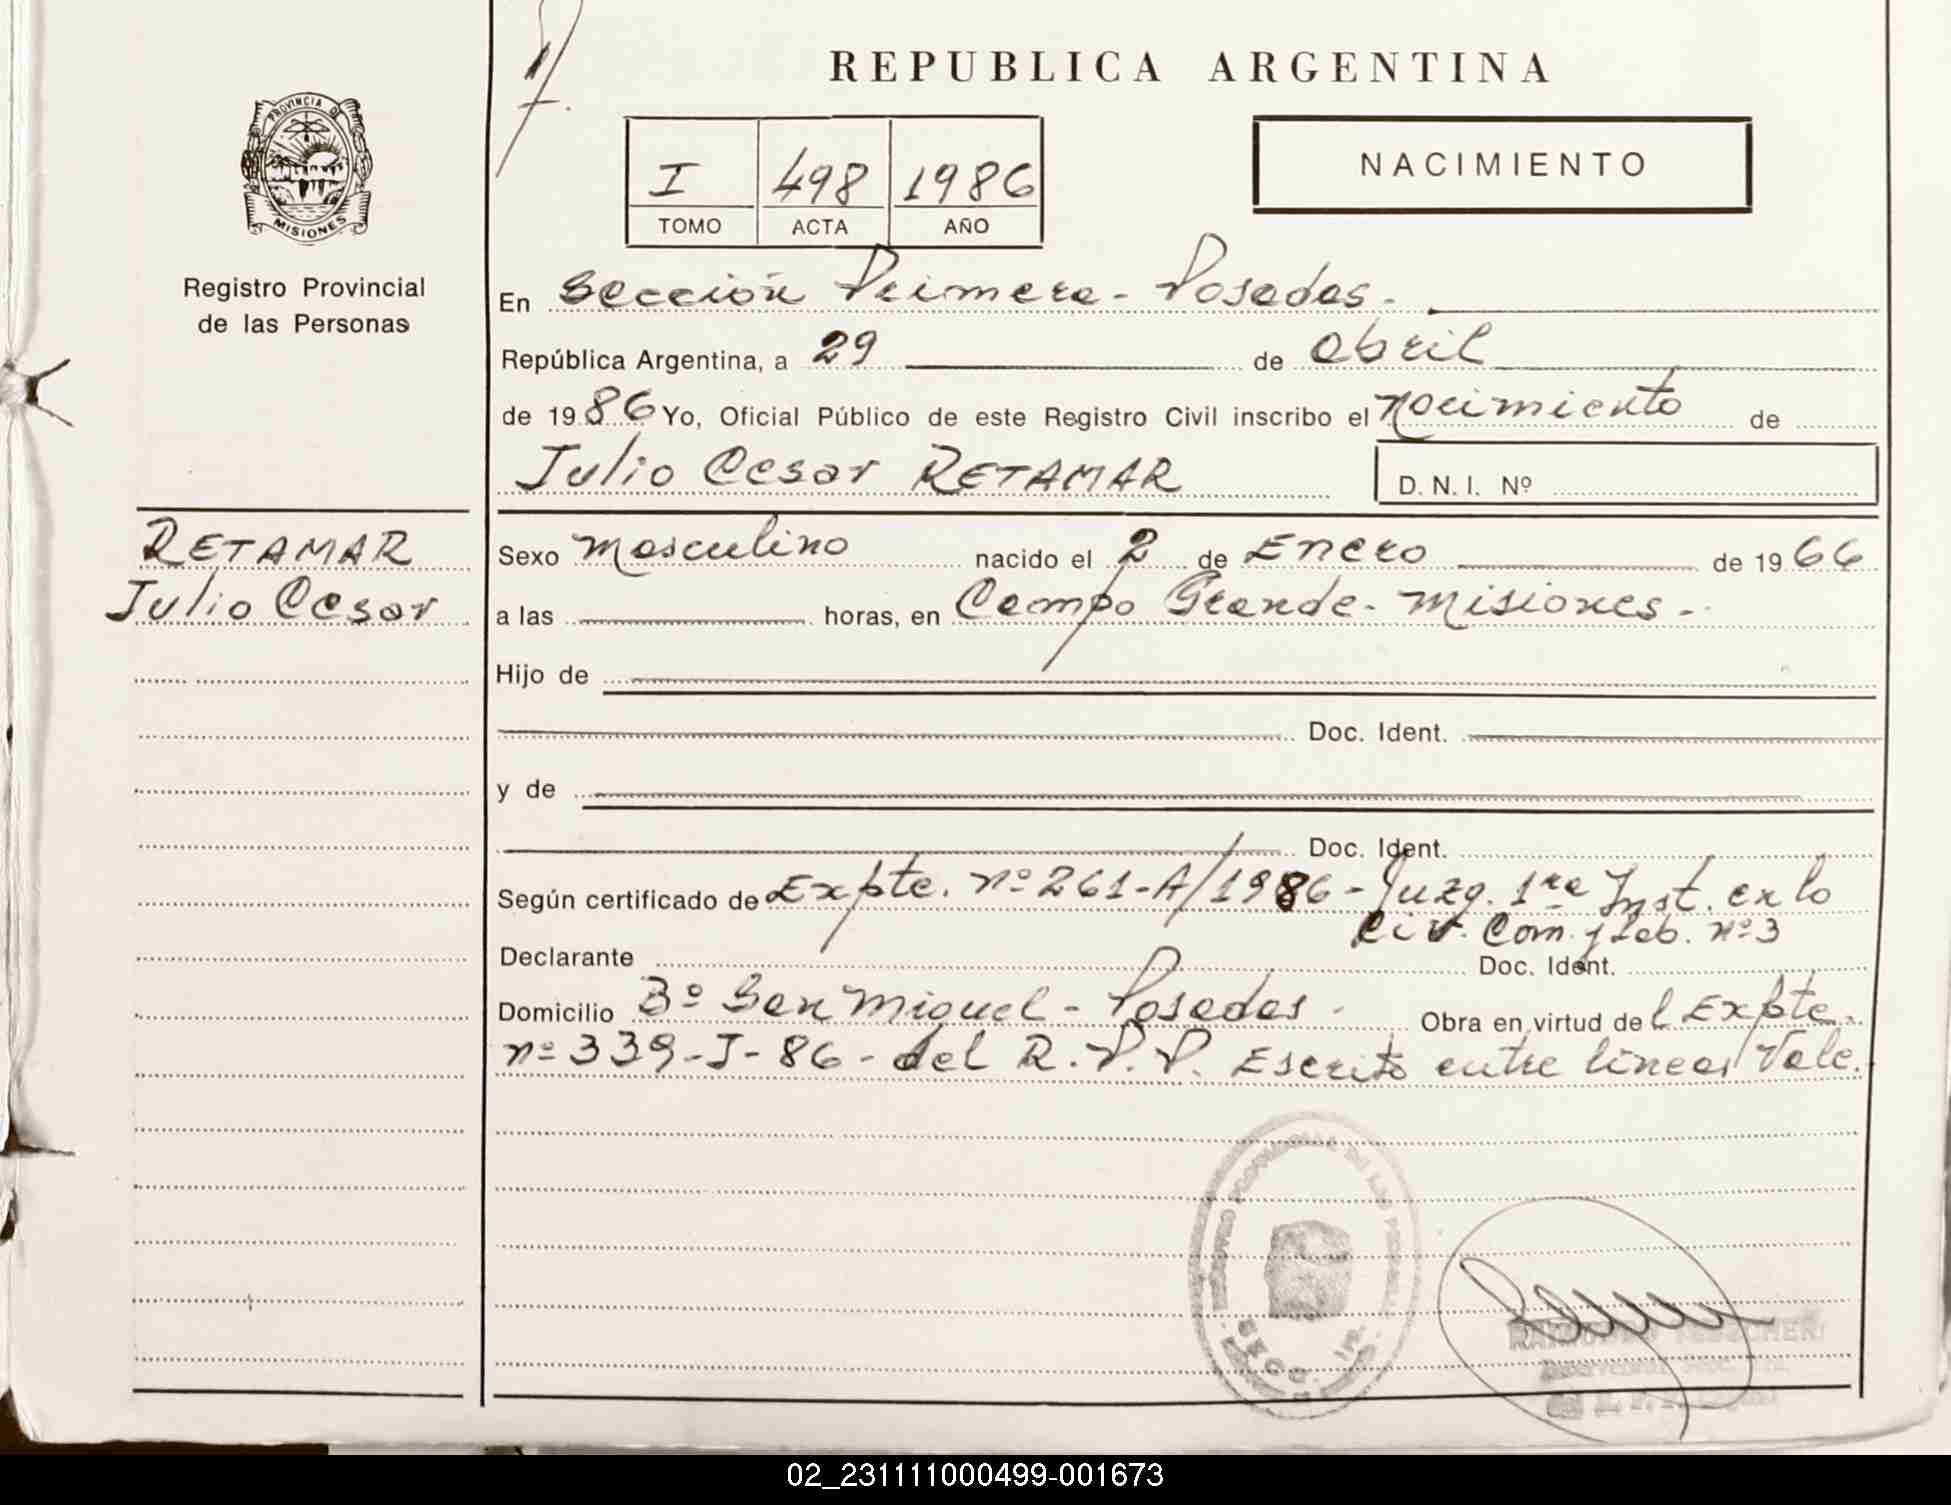 REPUBLICA ARGENTINA
PROVINCIA DE
MISIONES
Registro Provincial
de las Personas
I 498 1986
TOMO ACTA AÑO
NACIMIENTO
En Sección Primera - Posadas.-
República Argentina, a 29 de abril
de 1986 Yo, Oficial Público de este Registro Civil inscribo el nacimiento de
Julio Cesar RETAMAR
D.N.I. Nº
RETAMAR
Julio Cesar
Sexo masculino nacido el 2 de Enero de 1966
a las horas, en Campo Grande - Misiones -
Hijo de
Doc. Ident.
y de
Doc. Ident.
Según certificado de Expte. nº 261-A/1986 - Juzg. 1ra Inst. en lo
Civ. Com. y Lab. nº 3
Declarante Doc. Ident.
Domicilio Bº San Miguel - Posadas - Obra en virtud del Expte.
nº 339-J-86 - del R.P.P. Escrito entre lineas Vale.
SECC. 1a.
02_231111000499-001673